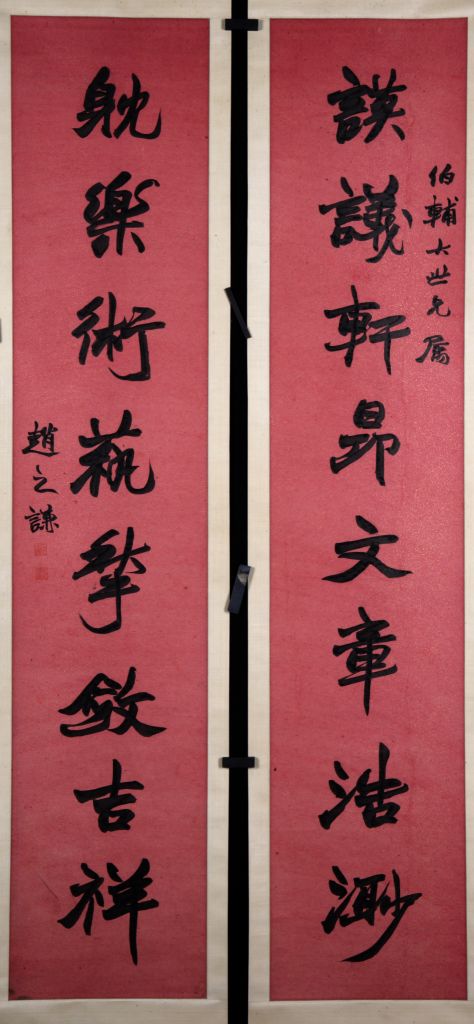 伯輔大世兄属
謨議軒昂文章浩渺
躭樂術蓺揫斂吉祥
趙之謙